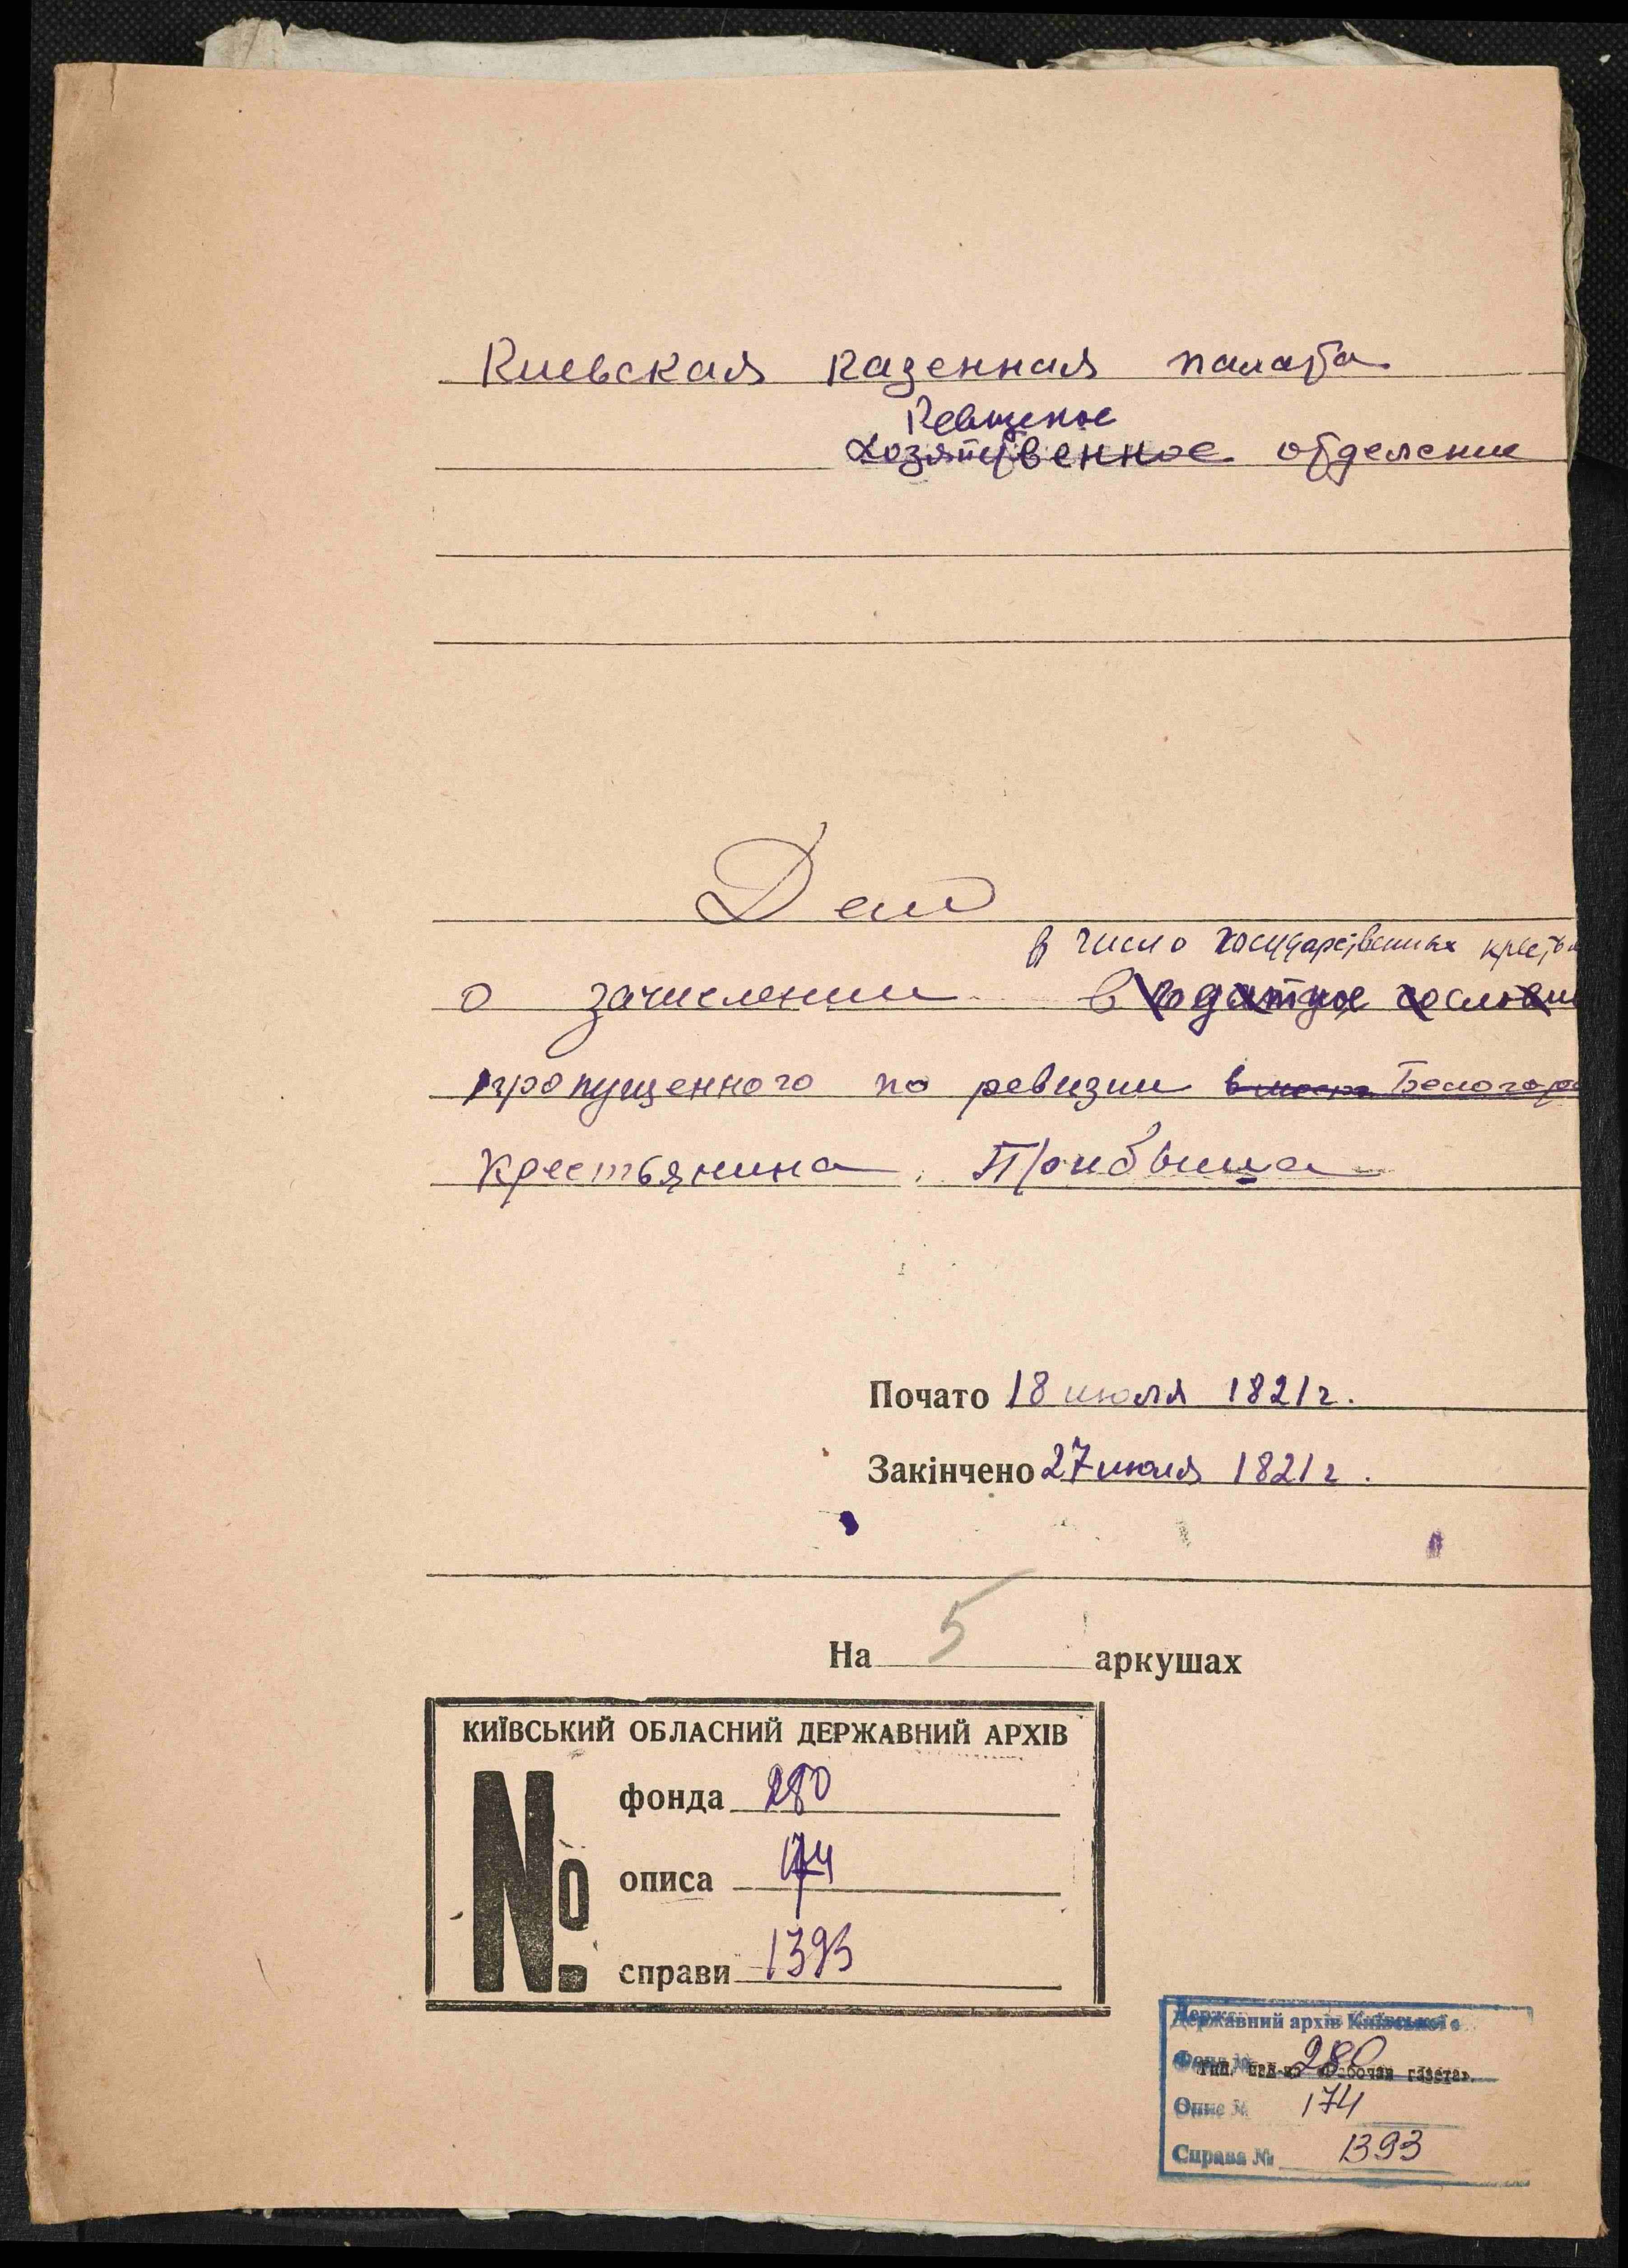 Киевская казенная палата
Ревизское
Хозяйственное отделение
Дело
в число государственных крестья
о зачислении в податное сословие
пропущенного по ревизии Белогоро
крестьянина Прибыша
Почато 18 июля 1821 г.
Закінчено 27 июля 1821 г.
На 5 аркушах
КИЇВСЬКИЙ ОБЛАСНИЙ ДЕРЖАВНИЙ АРХІВ
№
фонда 280
описа 174
справи 1393
Державний архів Київської о
Фонд № 280
Тип. изд-ва «Рабочая газета».
Опис № 174
Справа № 1393